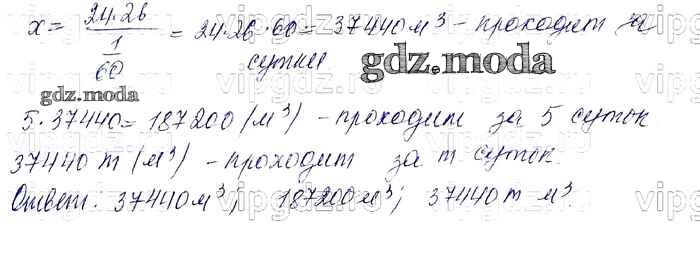 x = 24·26 / (1/60) = 24·26·60 = 37440 м³ – проходит за
сутки
gdz.moda
gdz.moda
5·37440 = 187200 (м³) – проходит за 5 суток
37440 m (м³) – проходит за m суток.
Ответ: 37440 м³; 187200 м³; 37440 m м³.